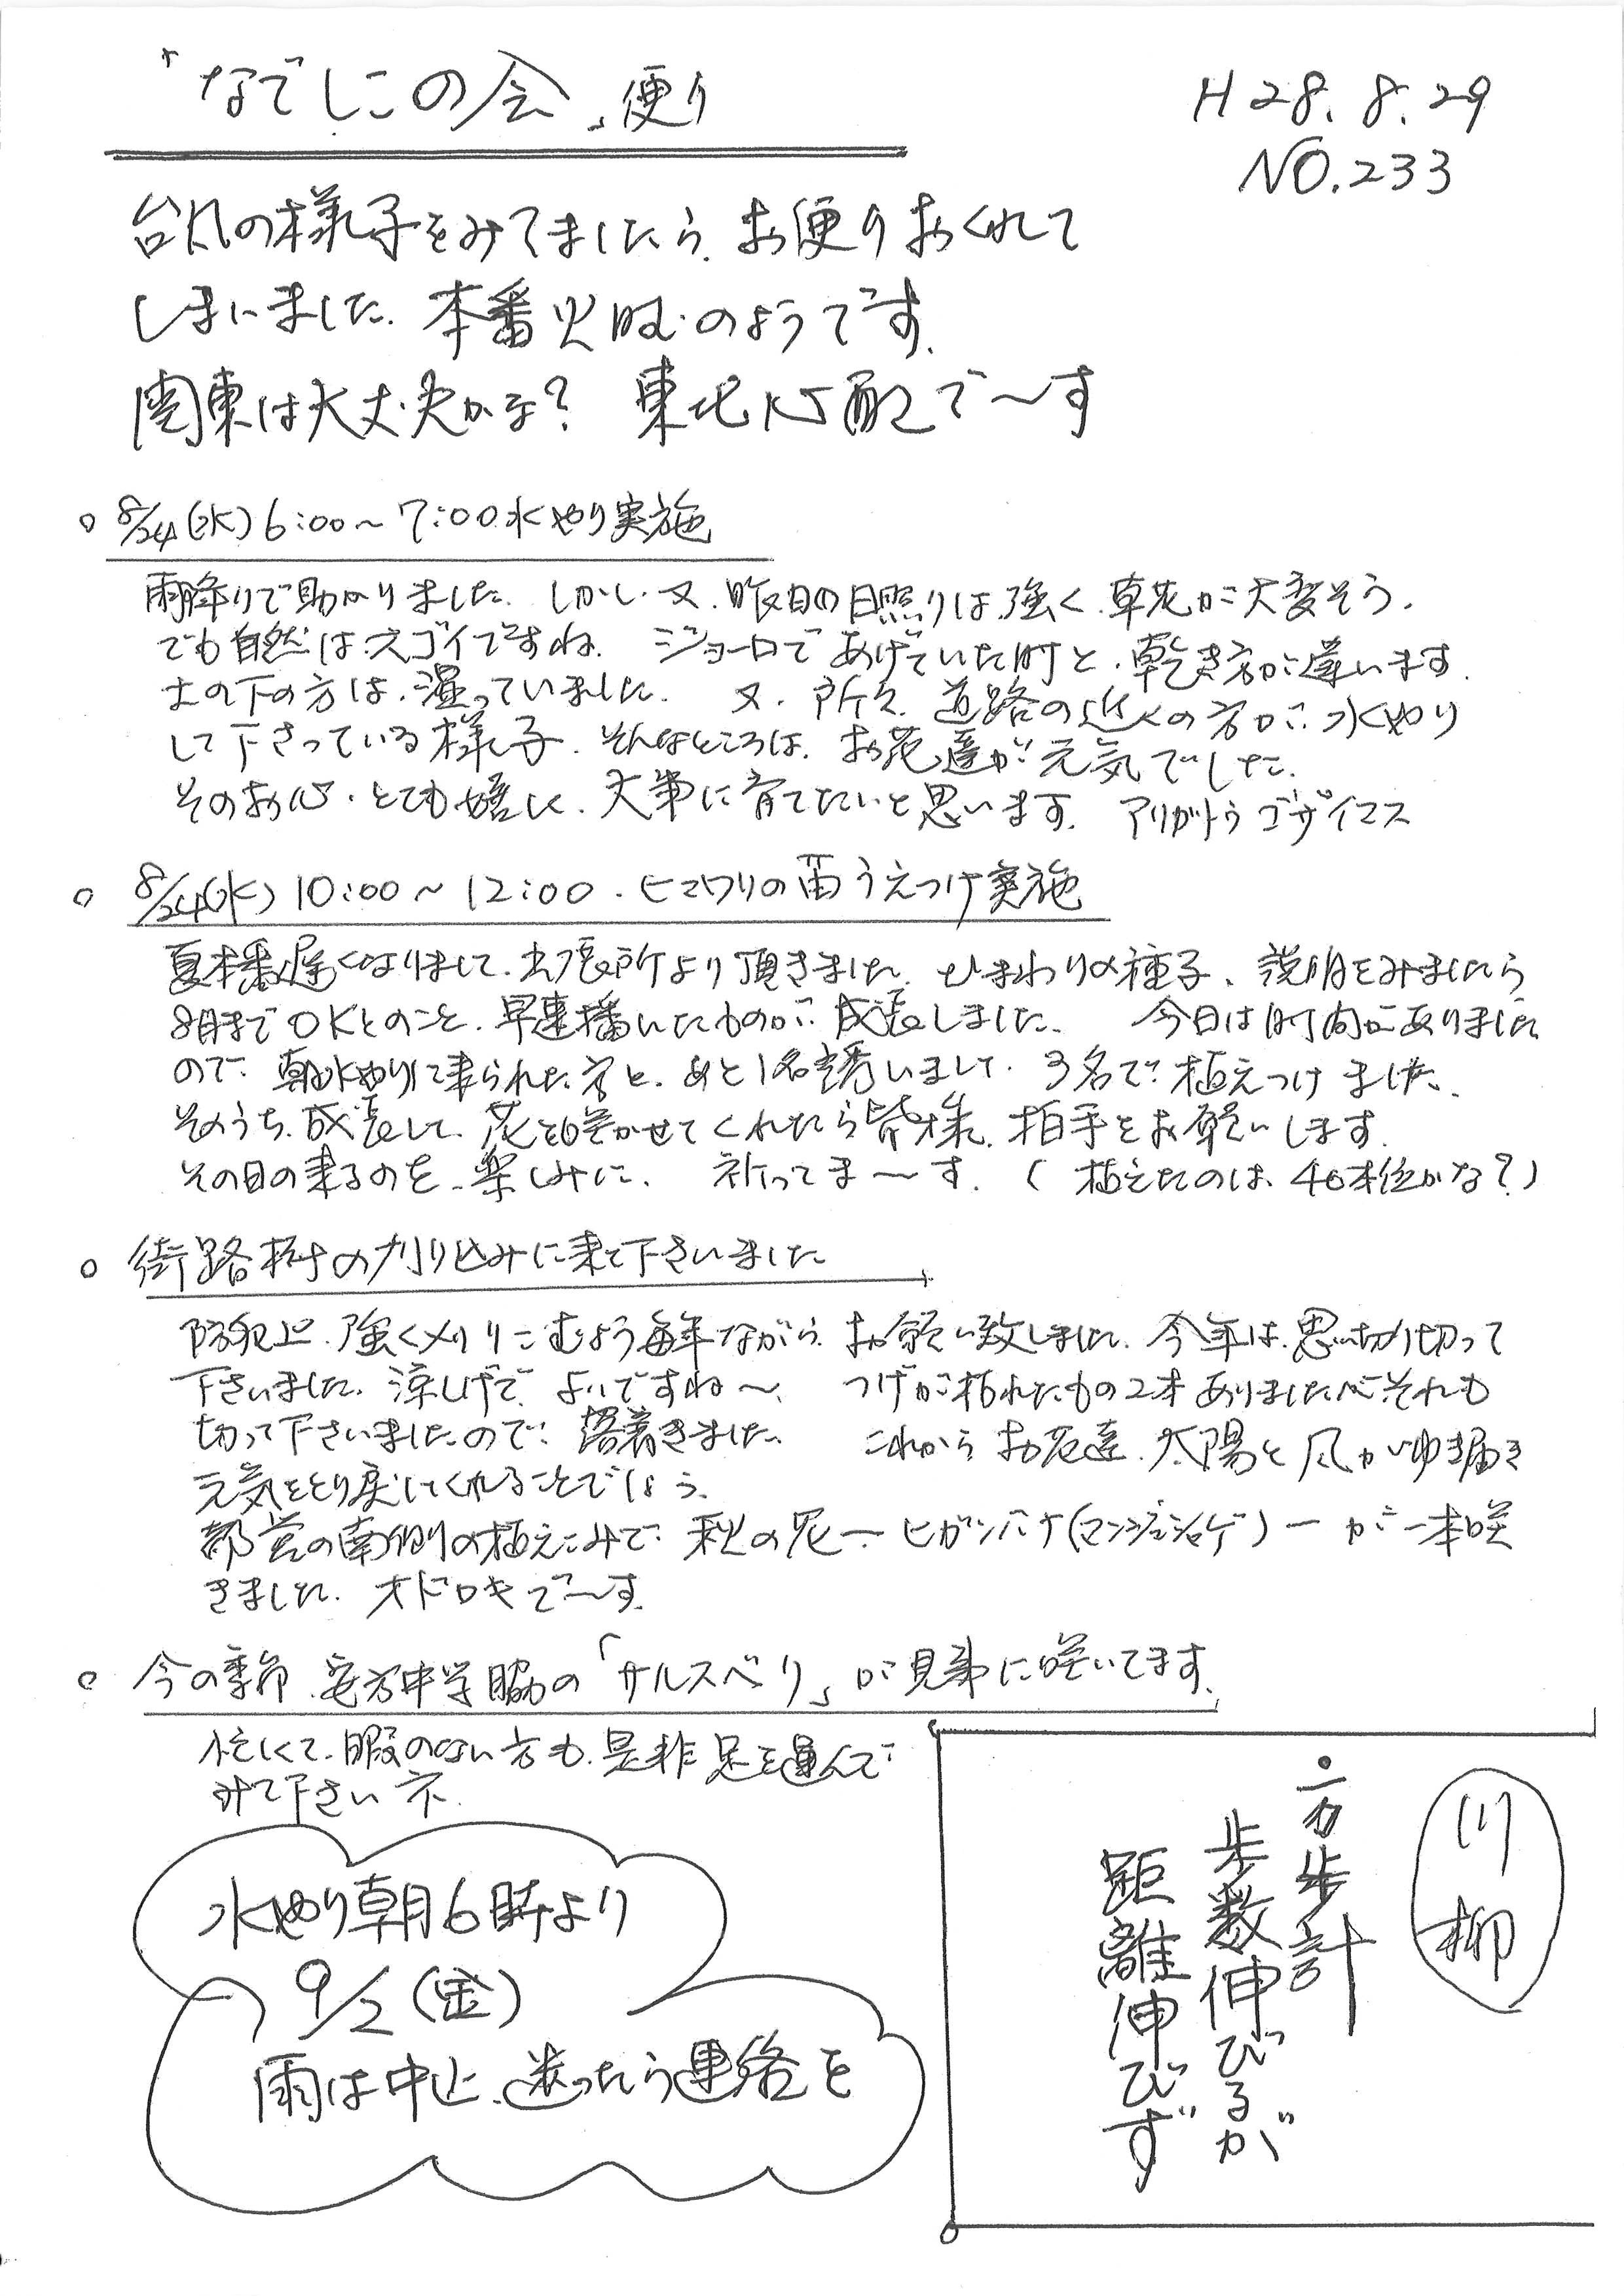 「なでしこの会」便り
H28.8.29
NO.233
台風の様子をみてましたら、お便りおくれて
しまいました。本番火曜のようです。
関東は大丈夫かな? 東北心配で〜す
○ 8/24(水)6:00〜7:00水やり実施
雨降りで助かりました。しかし、又、昨日の日照りは強く、草花が大変そう。
でも自然はスゴイですね。 ジョーロであげていた時と、乾き方が違います。
土の下の方は、湿っていました。 又、所々、道路の近くの方が、水やり
して下さっている様子。そんなところは、お花達が元気でした。
そのお心、とても嬉しく、大事に育てたいと思います。 アリガトウゴザイマス
○ 8/24(水)10:00〜12:00・ヒマワリの苗うえつけ実施
夏本番遅くなりまして、出張所より頂きました、ひまわりの種子、説明をみましたら
8月までOKとのこと、早速播いたものが、成長しました。 今日は時間がありました
ので、朝水やりに来られた方と、あと1名誘いまして、3名で植えつけました。
そのうち、成長して、花を咲かせてくれたら皆様、拍手をお願いします。
その日の来るのを、楽しみに、 祈ってま〜す。(植えたのは、40本位かな?)
○ 街路樹の刈り込みに来て下さいました
防犯上、強くメリこむよう毎年ながら、お願い致しました。今年は、思い切り切って
下さいました。涼しげで、よいですね〜、 つげが枯れたもの2本ありましたがそれも
切って下さいましたので、落着きました。 これからお花達、太陽と風がゆき届き
元気をとり戻してくれることでしょう。
都営の南側の植えこみで、秋の花ーヒガンバナ(マンジュシャゲ)ーが一本咲
きました。オドロキで〜す。
○ 今の季節、安方中学脇の「サルスベリ」が見事に咲いてます。
忙しくて、暇のない方も、是非足を運んで
みて下さいネ。
水やり朝6時より
9/2(金)
雨は中止、迷ったら連絡を
川柳
・万歩計
歩数伸びるが
距離伸びず